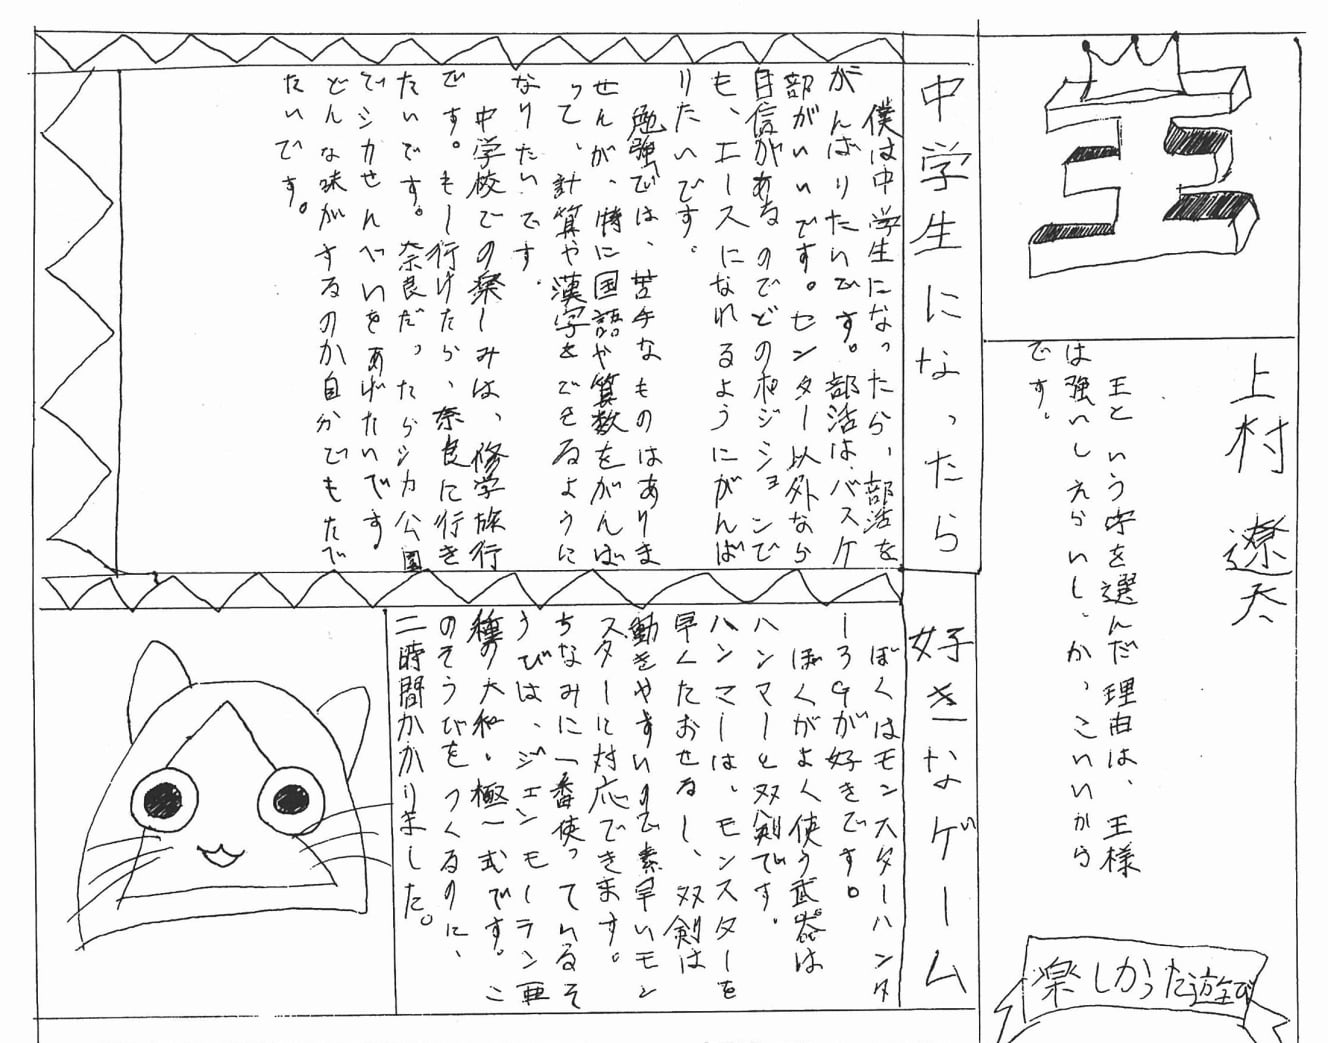 王
上村 遼大
王という字を選んだ理由は、王様
は強いしえらいし、かっこいいから
です。
楽しかった遊び
中学生になったら
僕は中学生になったら、部活を
がんばりたいです。部活は、バスケ
部がいいです。センター以外なら
自信があるのでどのポジションで
も、エースになれるようにがんば
りたいです。
勉強では、苦手なものはありま
せんが、特に国語や算数をがんば
って、計算や漢字をできるように
なりたいです。
中学校での楽しみは、修学旅行
です。もし行けたら、奈良に行き
たいです。奈良だったらシカ公園
でシカせんべいをあげたいです。
どんな味がするのか自分でもたべ
たいです。
好きなゲーム
ぼくはモンスターハンタ
ー3Gが好きです。
ぼくがよく使う武器は
ハンマーと双剣です。
ハンマーは、モンスターを
早くたおせるし、双剣は
動きやすいので素早いモン
スターに対応できます。
ちなみに一番使っているそ
うびは、ジエンモーラン亜
種の大和・極一式です。こ
のそうびをつくるのに、
二時間かかりました。